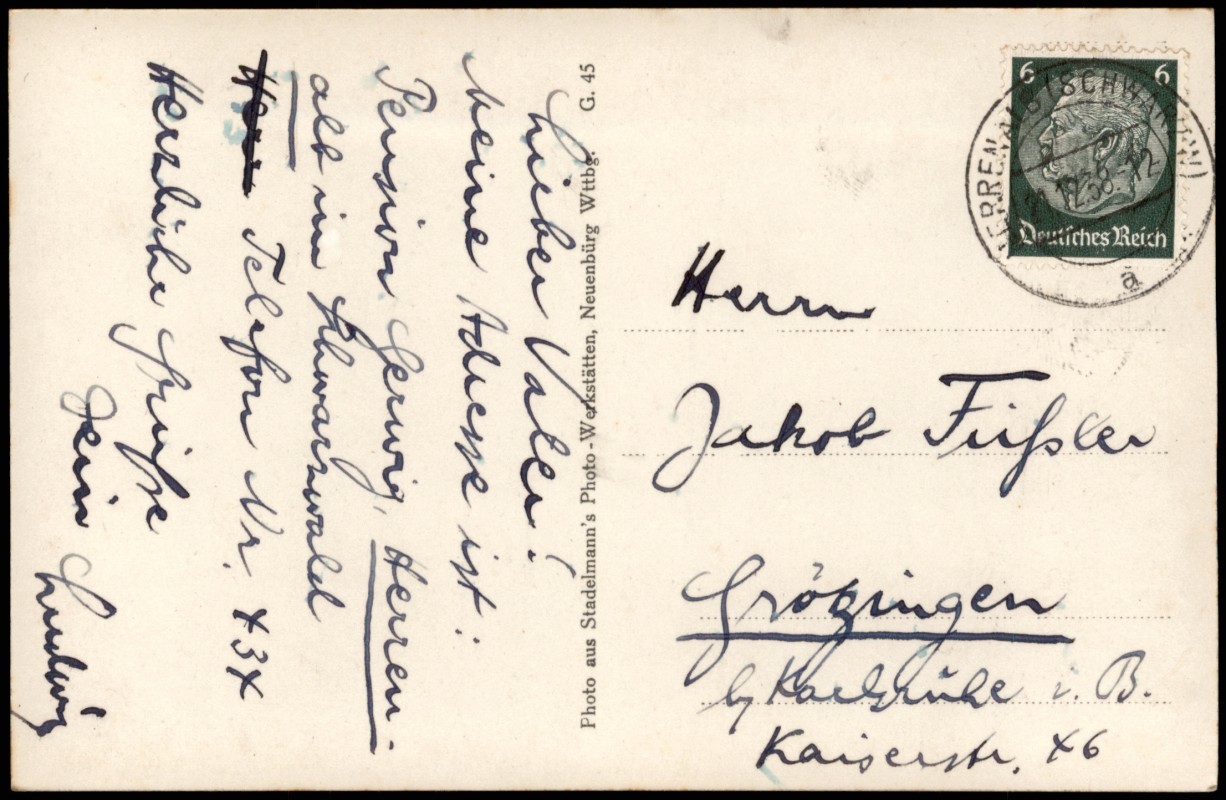 Lieber Vater!
Meine Adresse ist:
Pension Gerwig, Herren-
alb im Schwarzwald
Telefon Nr. 434
Herzliche Grüsse
Dein Ludwig
Photo aus Stadelmann's Photo-Werkstätten, Neuenbürg Wttbg. G. 45
6 6
Deutsches Reich
HERRENALB (SCHWARZW)
a
Herrn
Jakob Füßler
Grötzingen
b/ Karlsruhe i. B.
Kaiserstr. 46